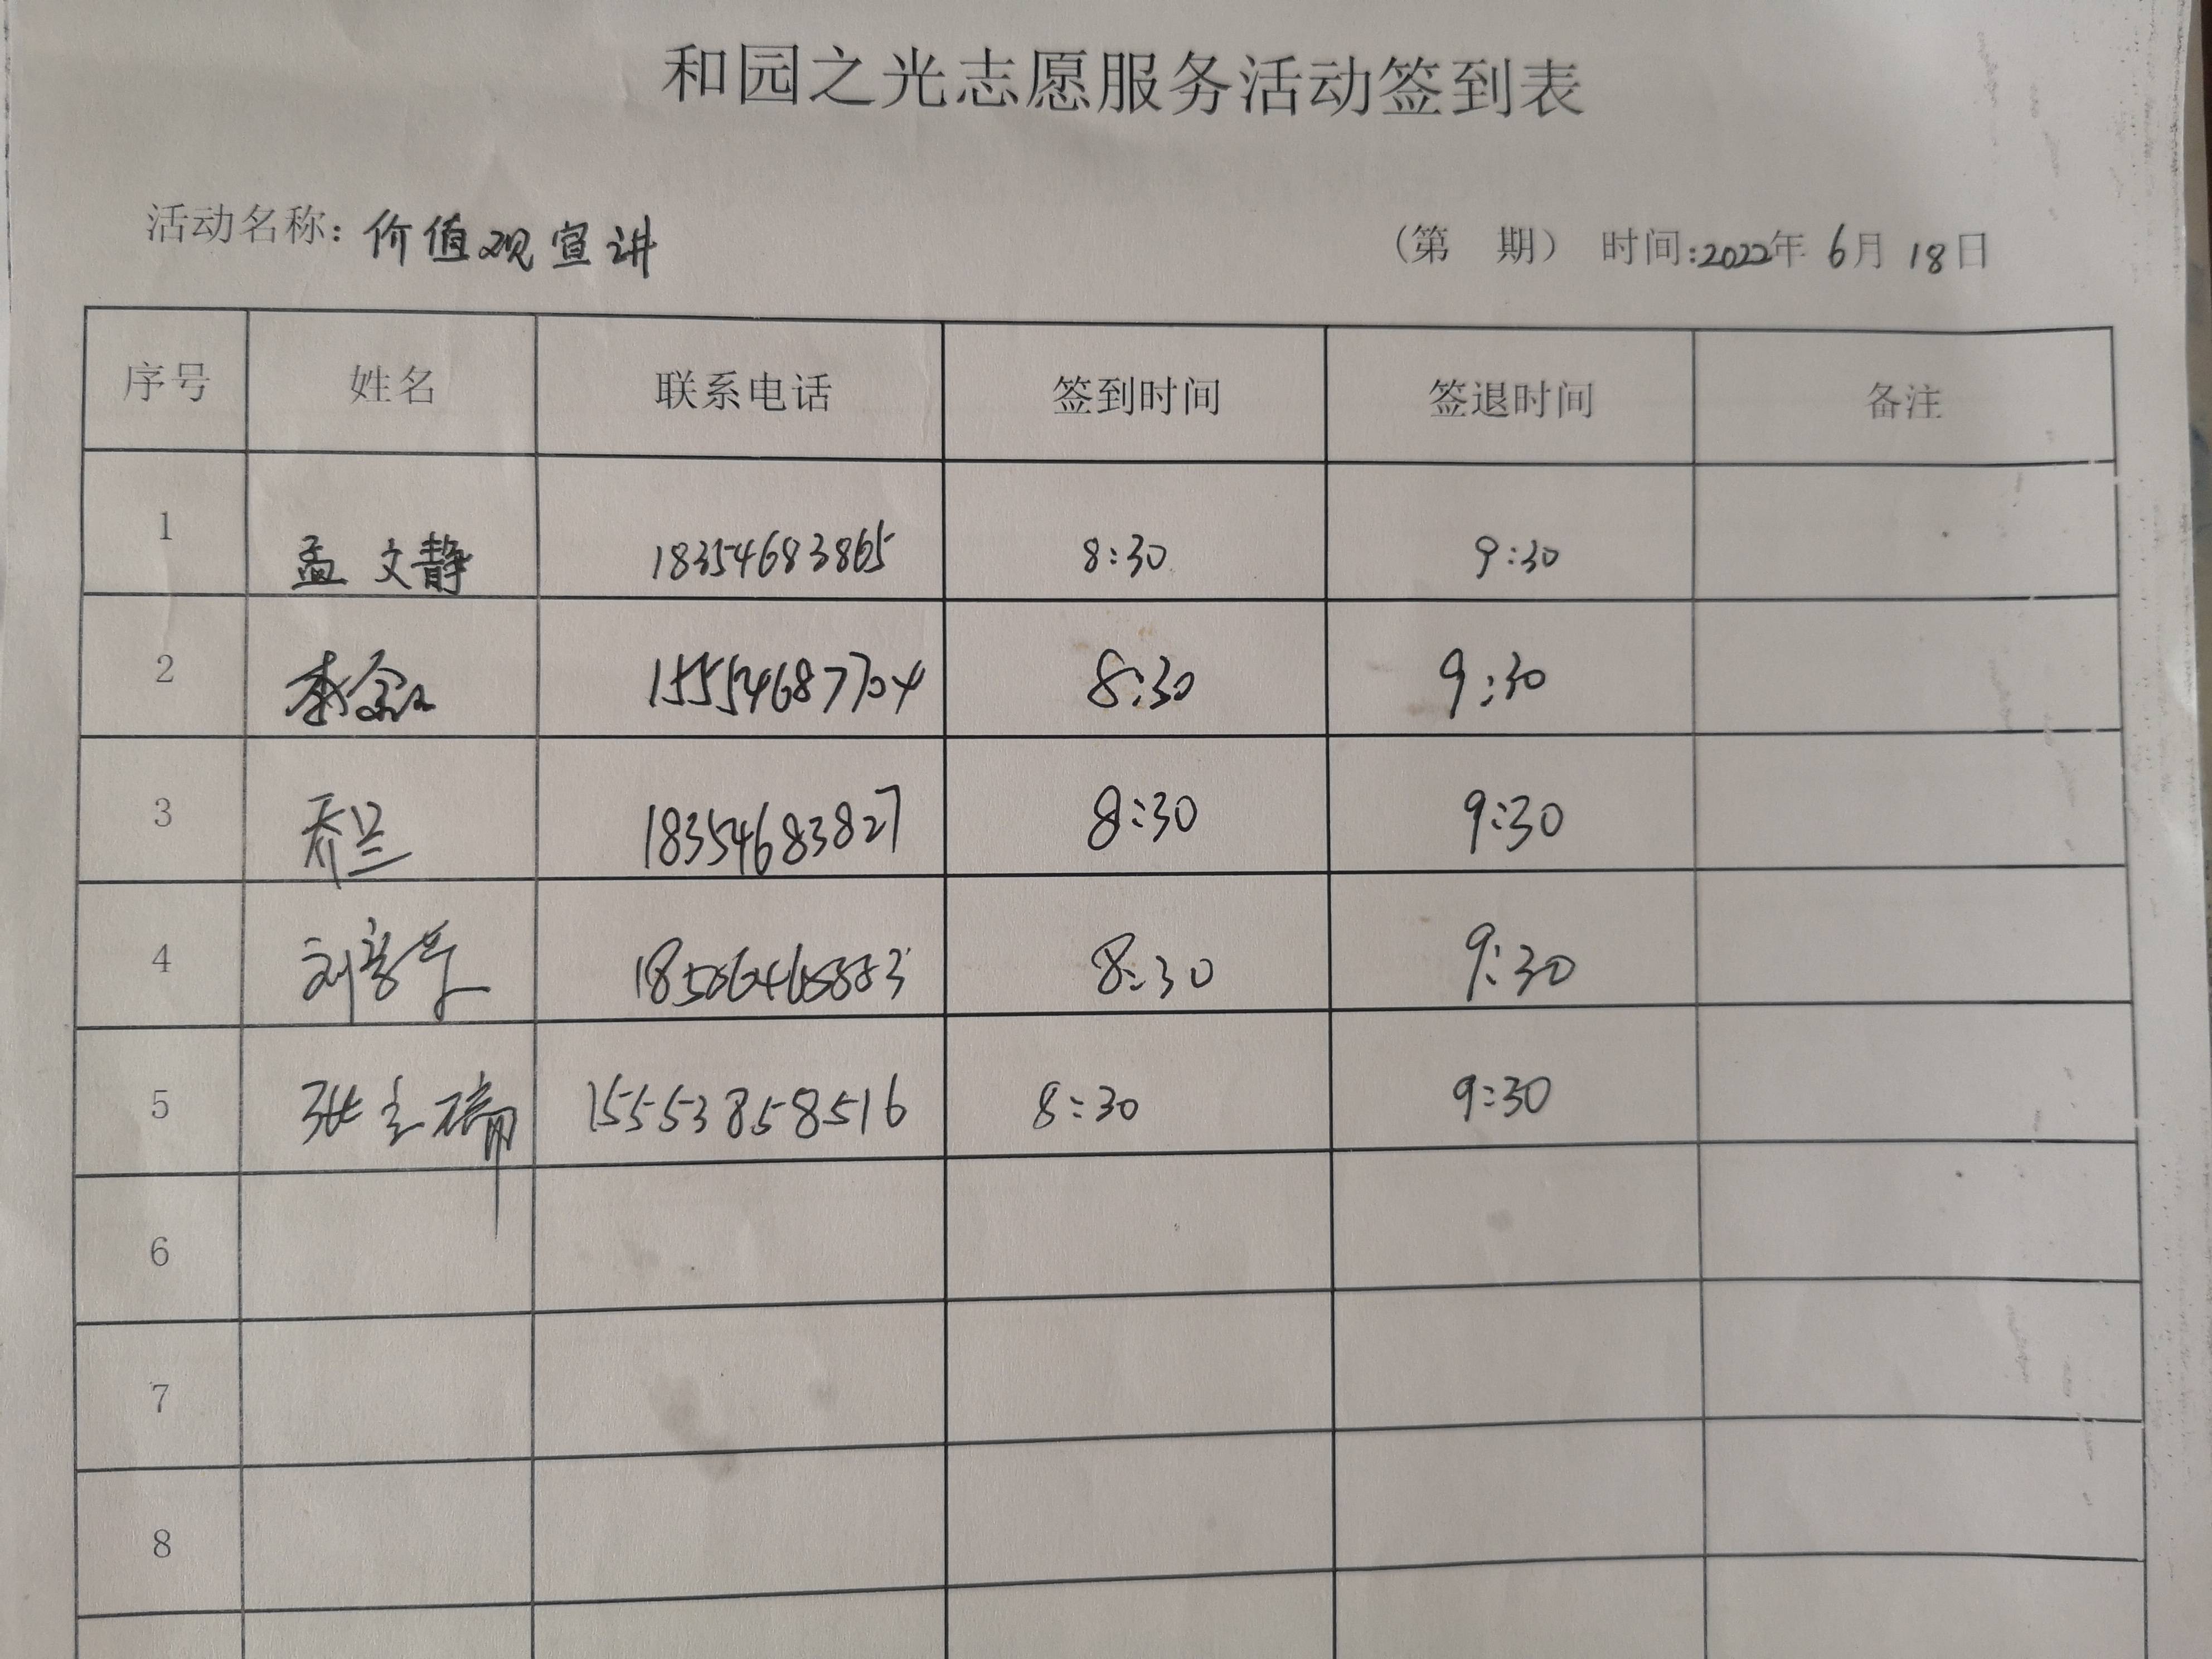 和园之光志愿服务活动签到表
活动名称: 价值观宣讲 (第 期) 时间:2022年 6月 18日
序号 姓名 联系电话 签到时间 签退时间 备注
1 孟文静 18354683865 8:30 9:30
2 15554687704 8:30 9:30
3 乔兰 18354683827 8:30 9:30
4 8:30 9:30
5 张 15553858516 8:30 9:30
6
7
8